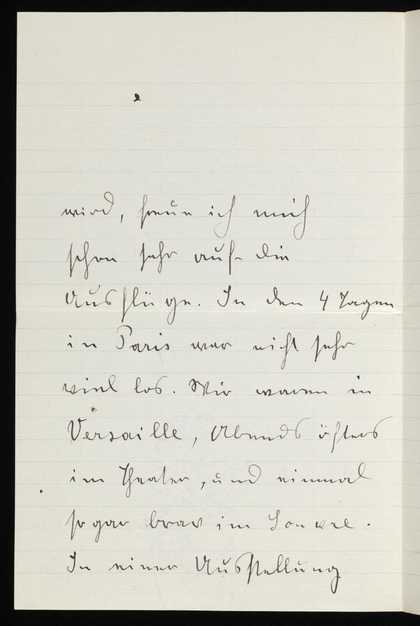 wird, freue ich mich
schon sehr auf die
Ausflüge. In den 4 Tagen
in Paris war nicht sehr
viel los. Wir waren in
Versaille, Abends öfters
im Theater, und einmal
sogar brav im Louvre.
In einer Ausstellung